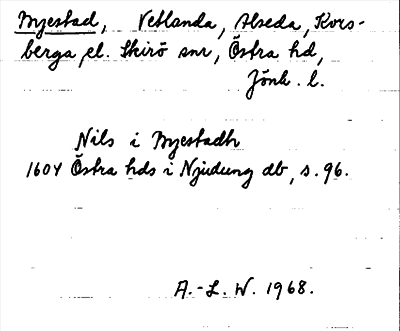 Myestad, Vetlanda, Alseda, Kors-
berga el. Skirö snr, Östra hd,
Jönk. l.
Nils i Myestadh
1604 Östra hds i Njudung db, s. 96.
A.-L. W. 1968.